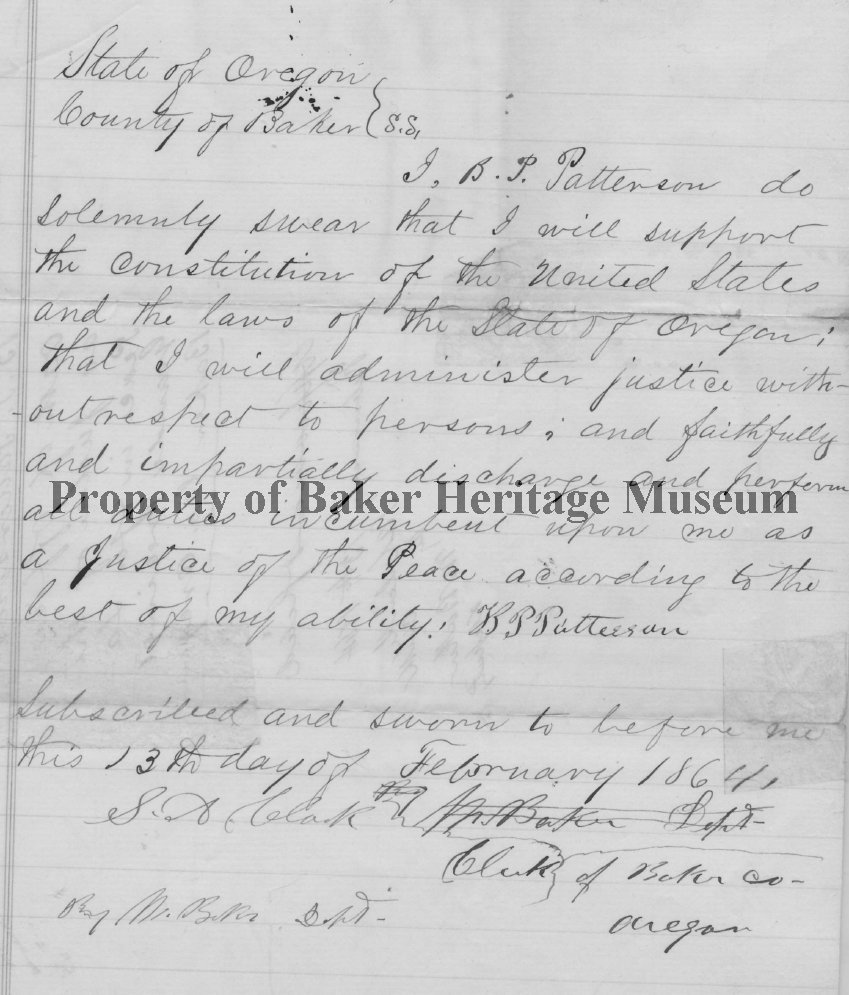 State of Oregon
County of Baker } S.S.
I, B. P. Patterson do
solemnly swear that I will support
the constitution of the United States
and the laws of the State of Oregon;
that I will administer justice with-
-out respect to persons; and faithfully
and impartially discharge and perform
Property of Baker Heritage Museum
all duties incumbent upon me as
a Justice of the Peace according to the
best of my ability. B P Patterson
Subscribed and sworn to before me
this 13th day of February 1864,
S. A. Clark By W. Baker Dept-
Clerk of Baker co-
By W. Baker Dept-
Oregon